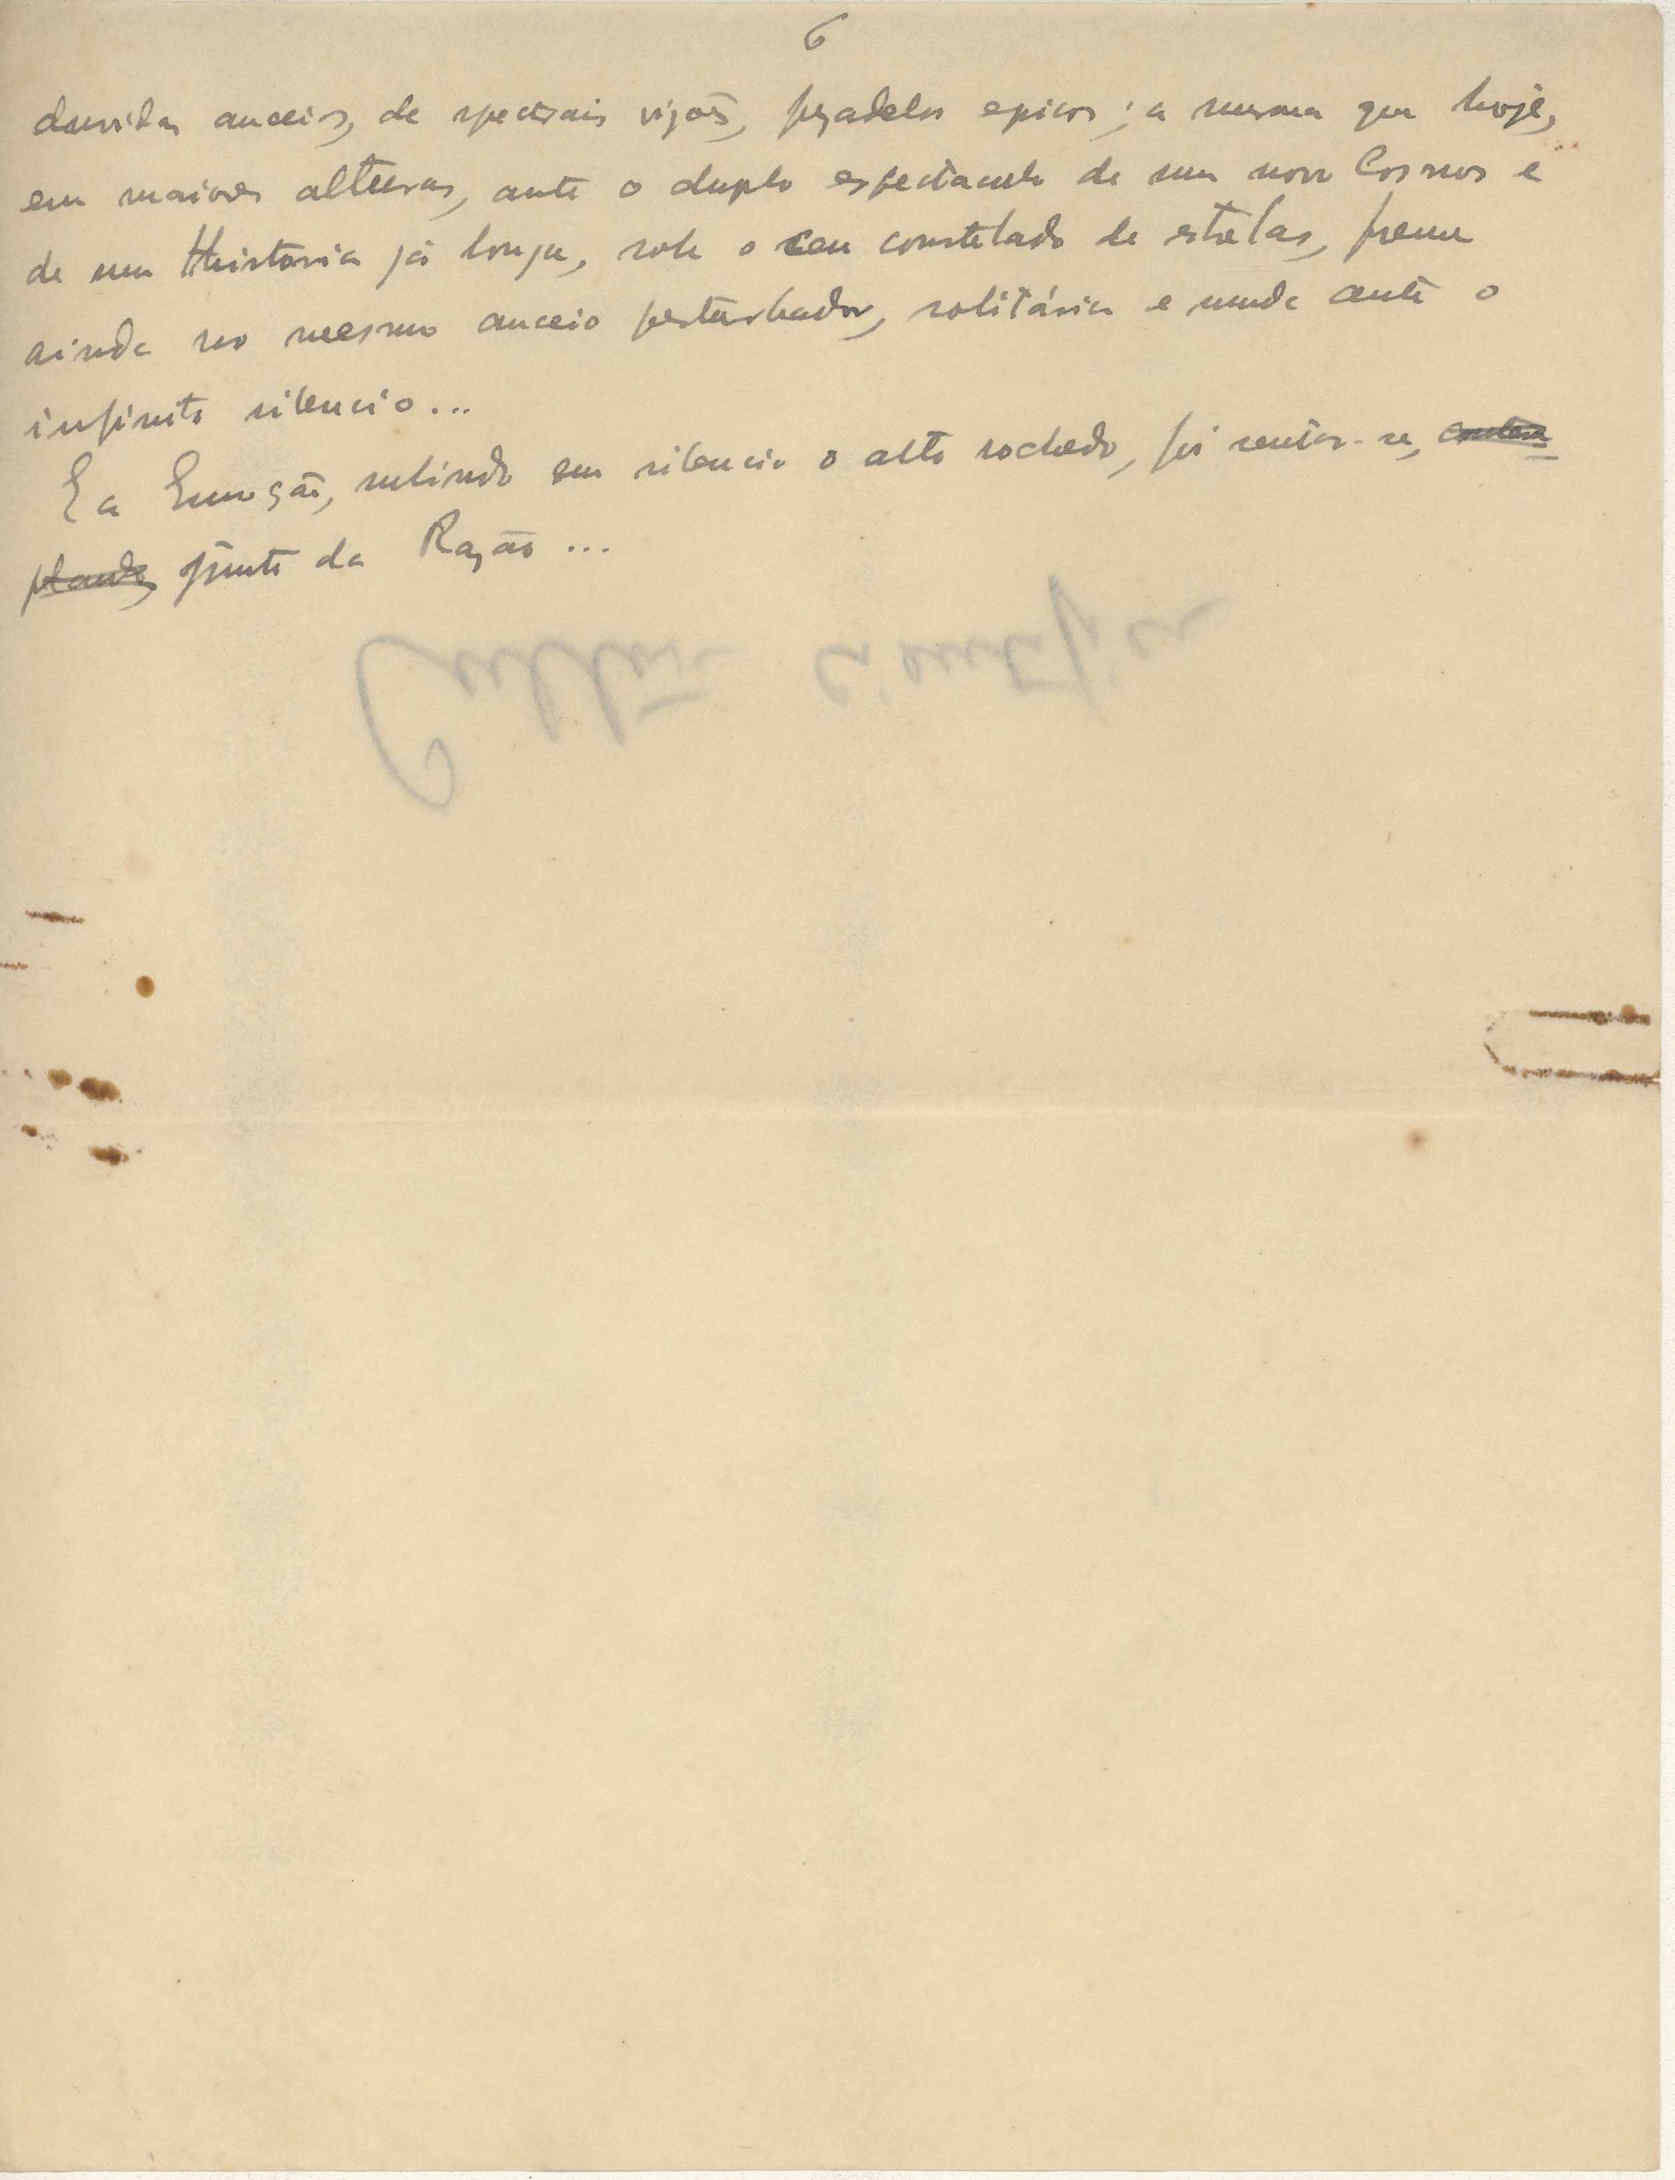 6
duvidas anceios, de spectrais vizões, pezadelos epicos; a mesma que hoje,
em maiores alturas, ante o duplo espectaculo de um novo Cosmos e
de uma Historia já longa, sob o ceu constelado de estrelas, freme
ainda no mesmo anceio perturbador, solitária e muda ante o
infinito silencio...
E a Emoção, subindo em silencio o alto rochedo, foi sentar-se, contem
plando, junto da Razão...
Cultura cientifica